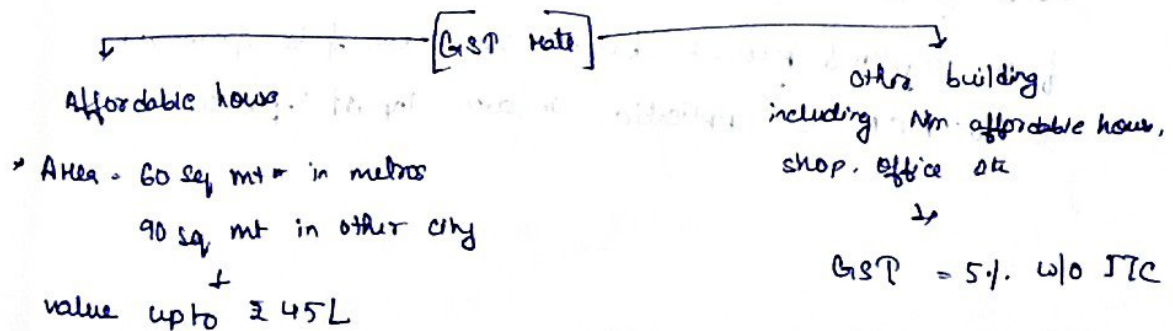 [GST rate]
Affordable house
* Area - 60 sq mt in metros
90 sq mt in other city
+
value upto ₹ 45L
Other building
including Non affordable house,
shop, office etc
GST = 5% w/o ITC